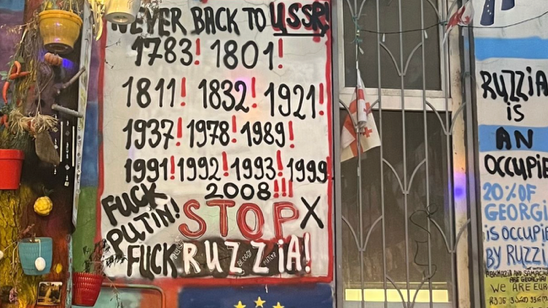 NEVER BACK TO USSR!
1783! 1801!
1811! 1832! 1921!
1937! 1978! 1989!
1991! 1992! 1993! 1999
2008!!!
FUCK
PUTIN!
STOP X
FUCK RUZZIA!
RUZZIA
IS
AN
OCCUPIE
20% OF
GEORGI
IS OCCUPIE
BY RUZZI
WE ARE EUR